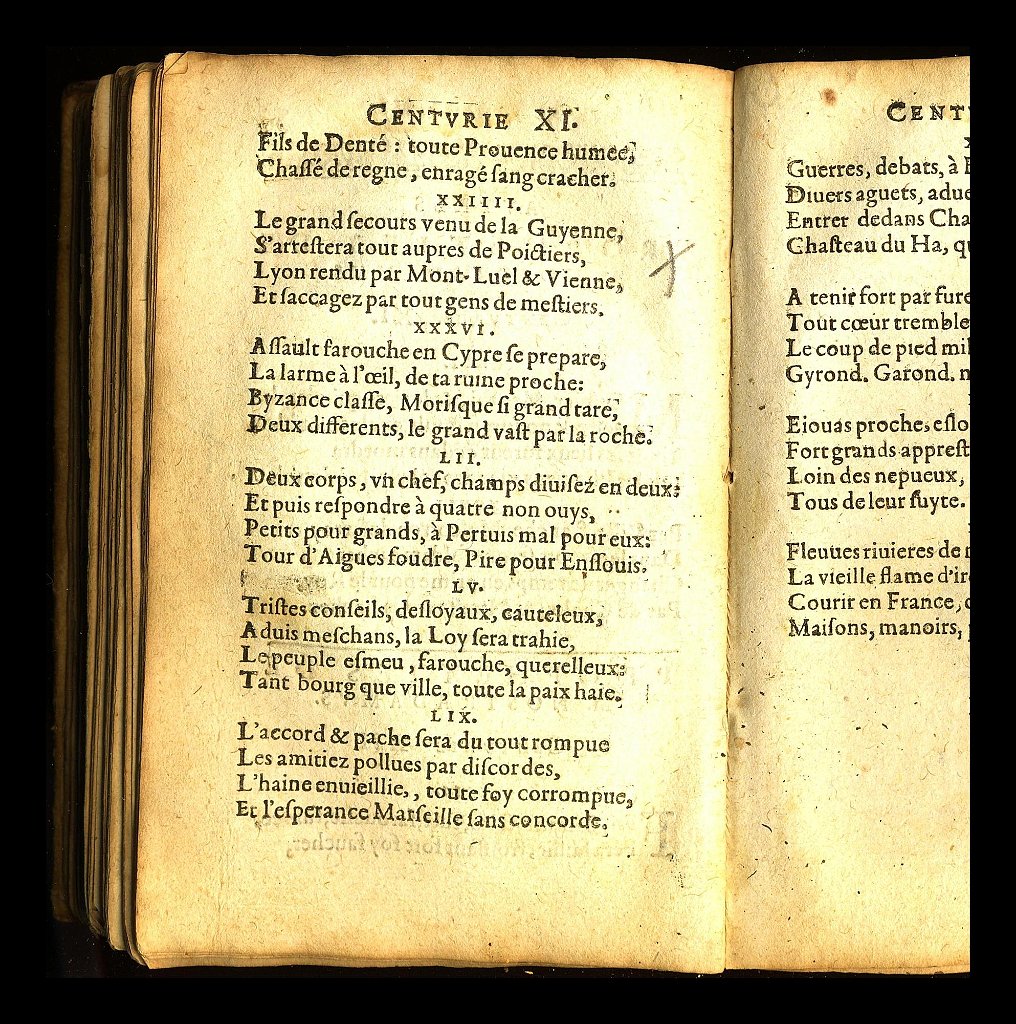 CENTVRIE XI.
Fils de Denté : toute Prouence humee,
Chaſſé de regne, enragé ſang cracher.
XXIIII.
Le grand ſecours venu de la Guyenne,
S'arreſtera tout aupres de Poictiers,
Lyon rendu par Mont-Luel & Vienne,
Et ſaccagez par tout gens de meſtiers.
XXXVI.
Aſſault farouche en Cypre ſe prepare,
La larme à l'œil, de ta ruine proche:
Byzance claſſe, Moriſque ſi grand tare,
Deux differents, le grand vaſt par la roche.
LII.
Deux corps, vn chef, champs diuiſez en deux:
Et puis reſpondre à quatre non ouys,
Petits pour grands, à Pertuis mal pour eux:
Tour d'Aigues foudre, Pire pour Enſſouis.
LV.
Triſtes conſeils, deſloyaux, cauteleux,
Aduis meſchans, la Loy ſera trahie,
Le peuple eſmeu, farouche, querelleux:
Tant bourg que ville, toute la paix haie.
LIX.
L'accord & pache ſera du tout rompue
Les amitiez pollues par diſcordes,
L'haine enuieillie,, toute foy corrompue,
Et l'eſperance Marſeille ſans concorde.
CENT
Guerres, debats, à
Diuers aguets,
Entrer dedans
Chaſteau du Ha,
A tenir fort par
Tout cœur tremble
Le coup de pied
Gyrond. Garond.
Eiouas proche,
Fort grands
Loin des nepueux,
Tous de leur fuyte.
Fleuues riuieres de
La vieille flame
Courir en France,
Maiſons, manoirs,